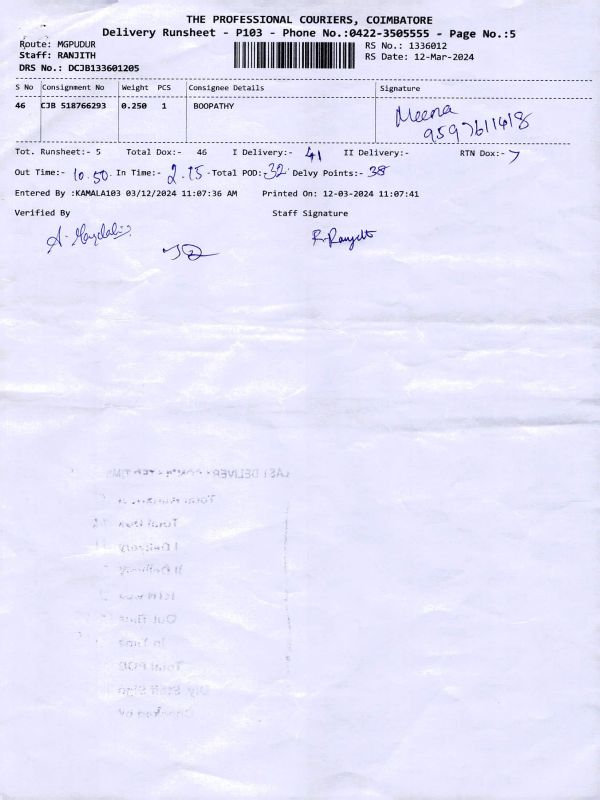 THE PROFESSIONAL COURIERS, COIMBATORE
Delivery Runsheet - P103 - Phone No.:0422-3505555 - Page No.:5
Route: MGPUDUR
RS No.: 1336012
Staff: RANJITH
RS Date: 12-Mar-2024
DRS No.: DCJB133601205
S No Consignment No Weight PCS Consignee Details Signature
46 CJB 518766293 0.250 1 BOOPATHY Meena
9597611418
Tot. Runsheet:- 5 Total Dox:- 46 I Delivery:- 41 II Delivery:- RTN Dox:-
Out Time:- 10.50 In Time:- 2.15 Total POD:- 32 Delvy Points:- 38
Entered By :KAMALA103 03/12/2024 11:07:36 AM Printed On: 12-03-2024 11:07:41
Verified By Staff Signature
R. Ranjith